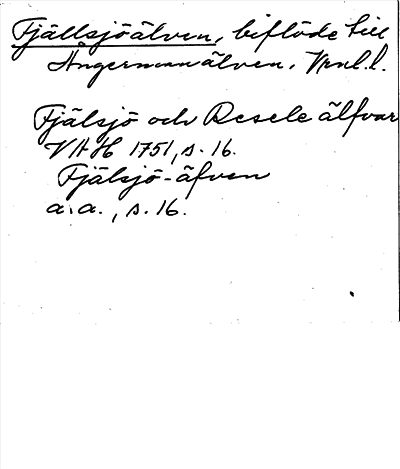 Fjällsjöälven, biflöde till
Ångermanälven, Vrnl.l.
Fjälsjö och Resele älfvar
VAH 1751, s. 16.
Fjälsjö-äfven
a.a., s. 16.